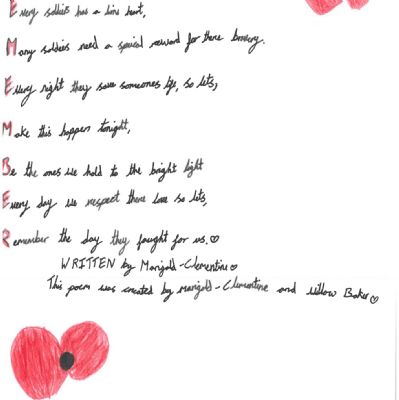 Every soldier has a lions heart,
Many soldiers need a special reward for there bravery.
Every night they save someones life, so lets,
Make this happen tonight,
Be the ones we hold to the bright light
Every day we respect there love so lets,
Remember the day they fought for us.
WRITTEN by Marigold-Clementine
This poem was created by marigold-Clementine and Willow Baker